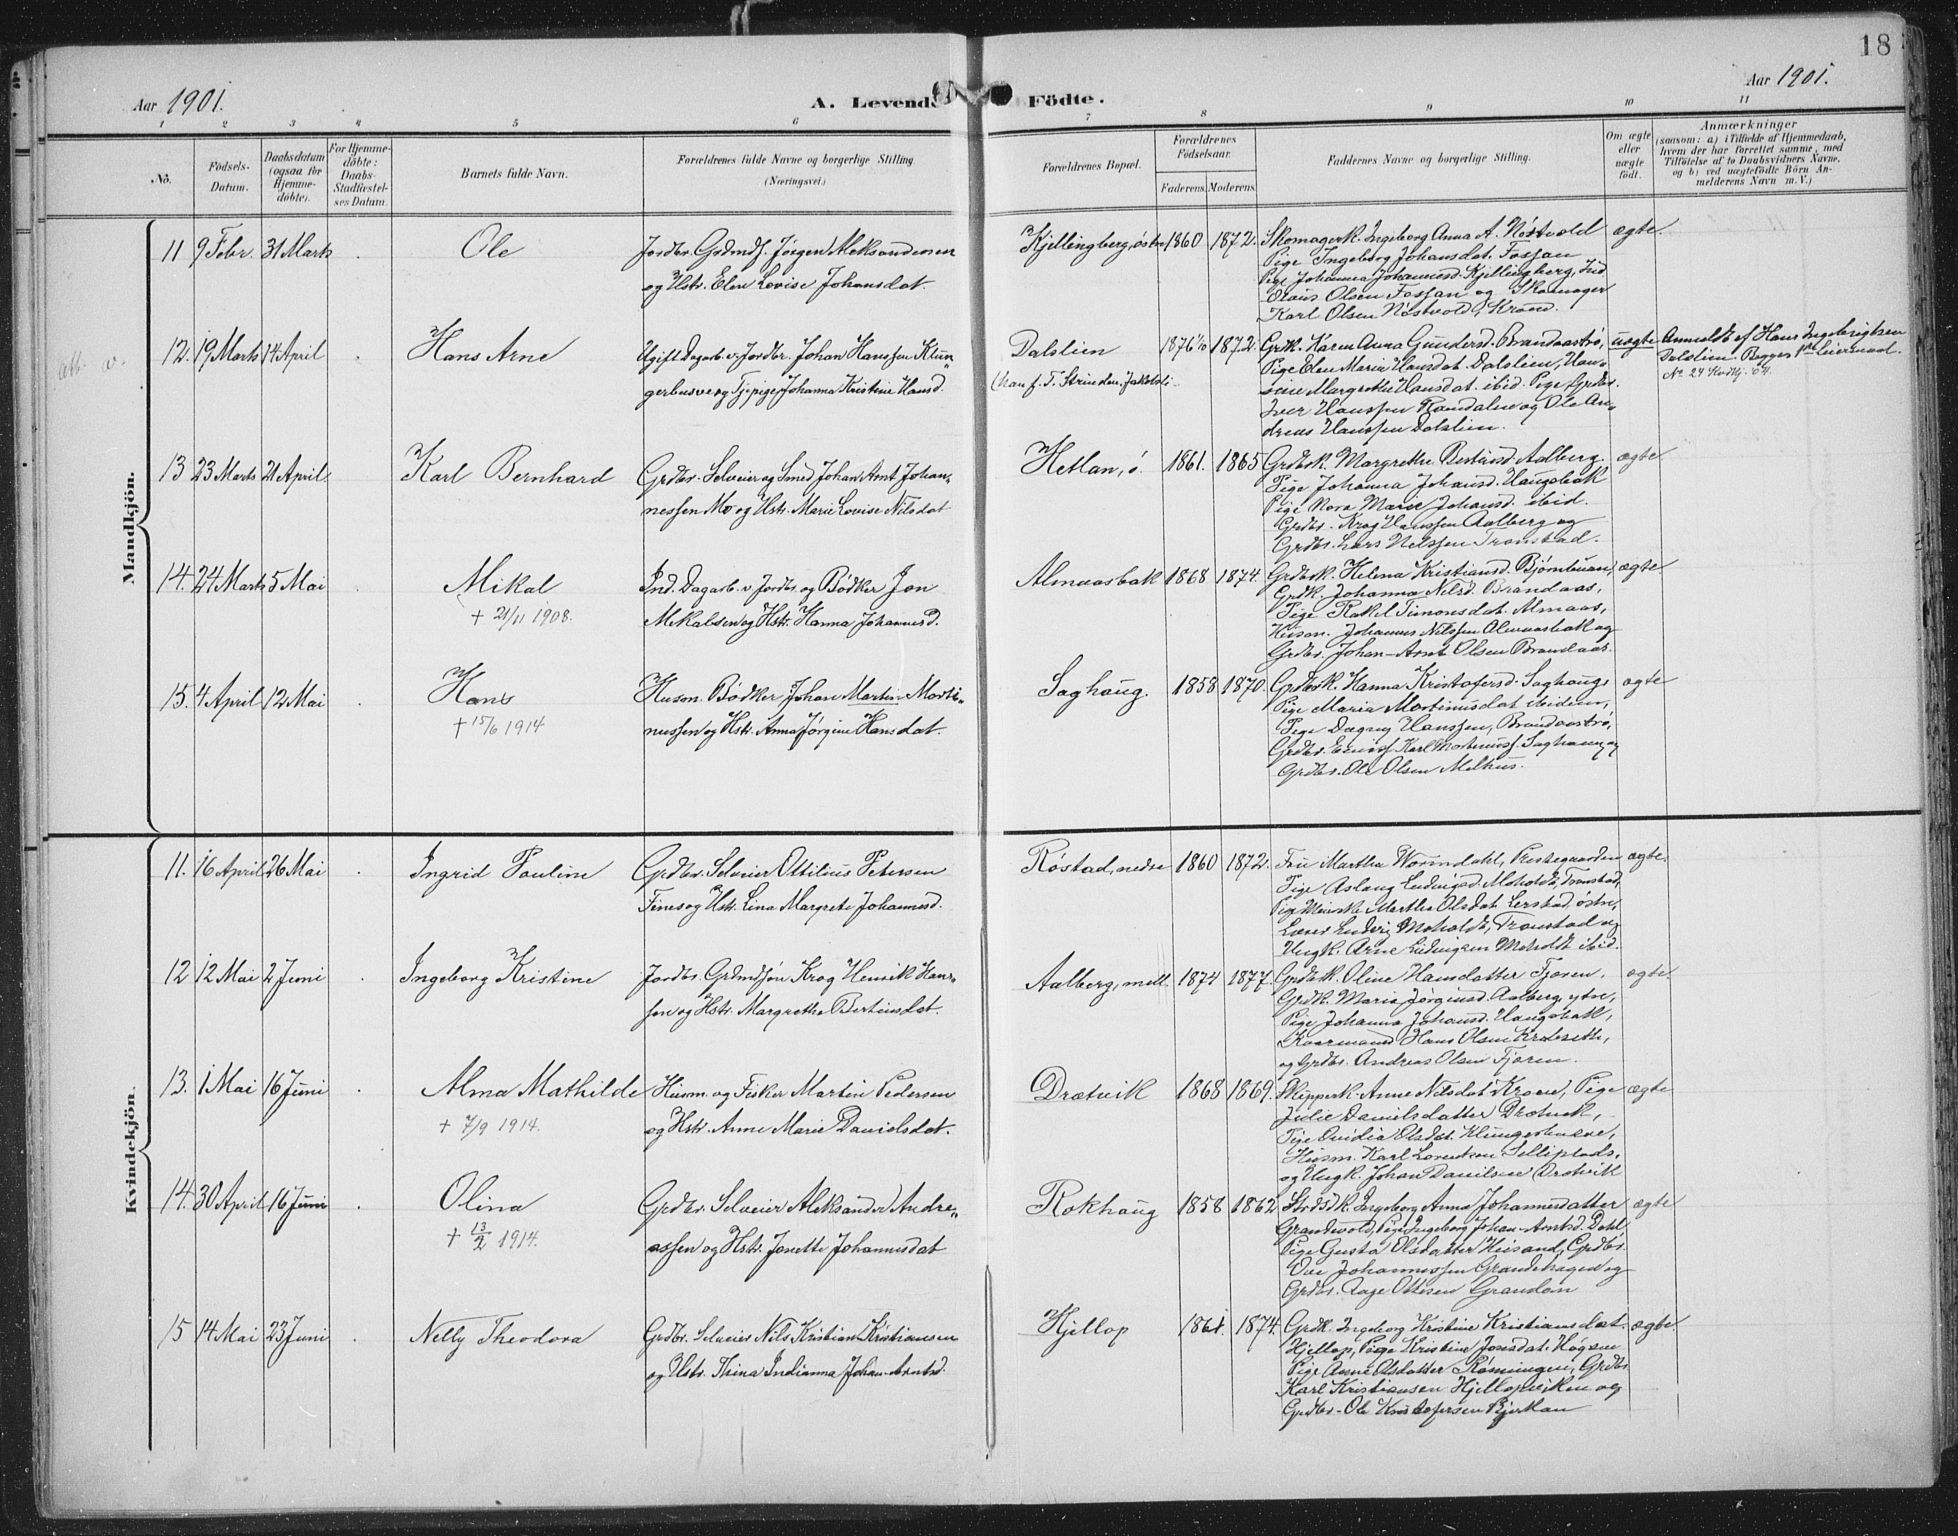 18
Aar 1901.
A. Levende Fødte.
Aar 1901.
1 2 3 4 5 6 7 8 9 10 11
No.
Fødsels-
Datum.
Daabsdatum
(ogsaa for
Hjemme-
døbte).
For Hjemme-
døbte:
Daabs-
Stadfæstel-
ses Datum.
Barnets fulde Navn.
Forældrenes fulde Navne og borgerlige Stilling.
(Næringsvei.)
Forældrenes Bopæl.
Forældrenes
Fødselsaar.
Faderens.
Moderens.
Faddernes Navne og borgerlige Stilling.
Om ægte
eller
uægte
født.
Anmærkninger
(saasom: a) i Tilfælde af Hjemmedaab,
hvem der har forrettet samme, med
Tilføielse af to Daabsvidners Navne.
og b) ved uægtefødte Børn An-
melderens Navn m. V.)
Mandkjøn.
11 9 Febr. 31 Marts Ole
Jordbr. Grdmdf. Jørgen Aleksandersen
og Hstr. Elen Lovise Johansdat.
Kjellingberg, østre 1860 1872.
Skomagerk. Ingeborg Anna A. Nøstvold
Pige Ingeborg Johansdat. Fossan
Pige Johanna Johannesd. Kjellingberg, Ind
Olaus Olsen Fossan og Skomager
Karl Olsen Nøstvold, Kroen.
ægte
12. 19 Marts 14 April Hans Arne
Ugift Dagarb. v. Jordbr. Johan Hanssen Klun-
gerhusve og Tj. pige Johanna Kristine Hansd.
Dalslien
(han f. T. Strinden, Jakobsli
1876 1872.
Grdk. Karen Anna Gundersd. Brandaastrø,
Pige Elen Maria Hansdat. Dalslien, Han-
sine Margrethe Hansdat. ibid. Pige, Grdbr.
Iver Hanssen Rondalen og Ole An-
dreas Hanssen Dalslien.
uægte
Anmeldt af Hans Ingebrigtsen
Dalslien. Begges 1ste Leiermaal.
13 23 Marts 21 April Karl Bernhard
Grdbr. Selveier og Smed Johan Arnt Johan-
nessen Mo og Hstr. Marie Lovise Nilsdat
Hetlan, ø. 1861. 1865
Grdbrsk. Margrethe Bertinsd. Aalberg.
Pige Johanna Johansd. Haugsbak
Pige Nora Marie Johansd. ibid.
Grdbr. Krog Hanssen Aalberg og
Grdbr. Lars Nilssen Tronstad.
ægte
14. 24 Marts 5 Mai Mikal
+ 21/11 1908.
Ind. Dagarb. v. Jordbr. og Bødker Jon
Mikalsen og Hstr. Hanna Johannesd.
Almaasbak 1868 1874.
Grdbrsk. Helena Kristiansd. Bjørnbuan,
Grdk. Johanna Nilsd. Brandaas,
Pige Rakel Simonsdat. Almaas,
Husm. Johannes Nilssen Almaasbak og
Grdbr. Johan-Arnt Olsen Brandaas.
ægte
15. 4 April 12 Mai Hans
+ 15/6 1914
Husm. Bødker Johan Martin Morti-
nussen og Hstr. Anna Jørgine Hansdat.
Saghaug. 1858 1870.
Grdbrsk. Hanna Kristofersd. Saghaug,
Pige Maria Mortinusdat ibidem,
Pige Dagny Hanssen, Brandaastrø,
Karl Mortinuss. Saghaug og
Grdbr. Ole Olsen Melhus.
ægte
Kvindekjøn.
11. 16 April 26 Mai Ingrid Pauline
Grdbr. Selveier Ottilius Petersen
Fines og Hstr. Lina Margrete Johannesd.
Røstad, nedre 1860 1872.
Fru Martha Wormdahl, Prestegaarden
Pige Aslaug Ludvigsd. Moholdt, Tronstad,
Pige Martha Olsdat. Lerstad, østre,
Lærer Ludvig Moholdt, Tronstad og
Ungk. Arne Ludvigsen Moholdt ibid.
ægte.
12 12 Mai 2 Juni Ingeborg Kristine
Jordbr. Grdmdsøn Krog Henrik Hans-
sen og Hstr. Margrethe Bertinsdat.
Aalberg, mell. 1874 1877.
Grdbrsk. Oline Hansdatter Fjæren,
Grdk. Maria Jørginsd. Aalberg, ytre,
Pige Johanna Johansd. Haugsbak,
Kaarmand Hans Olsen Kroksæth,
og Grdbr. Andreas Olsen Fjæren.
ægte.
13. 1 Mai 16 Juni Alma Mathilde
+ 7/9 1914.
Husm. og Fisker Martin Pedersen
og Hstr. Anne Marie Danielsdat.
Drætvik 1868 1869.
Skipperk. Anne Nilsdat Kroen, Pige
Julie Danielsdatter Drætvik,
Pige Ovidia Olsdat. Klungerhusve,
Husm. Karl Lorentsen Selliplads,
og Ungk. Johan Danielsen Drætvik
ægte
14. 30 April 16 Juni Olina
+ 13/2 1914.
Grdbr. Selveier Aleksander Andre-
assen og Hstr. Jonette Johannisdat
Rokhaug 1858 1862
Ingeborg Anna Johannesdatter
Grandevold, Pige Ingeborg Johan-Arntsd. Dahl
Pige Gusta Olsdatter Husand, Grdbr.
Ove Johannessen Grandehagen og
Grdbr. Aage Ottesen Grandøn
ægte
15 14 Mai 23 Juni Nelly Theodora
Grdbr. Selveier Nils Kristian Kristiansen
og Hstr. Trina Indianna Johan-Arntsd.
Hjellop 1861. 1874.
Grdk. Ingeborg Kristine Kristiansdat.
Hjellop, Pige Kristine Jonsdat. Høgsve
Pige Anne Olsdatter Rømmingen, Grdbr.
Karl Kristiansen Hjellopviken og
Grdbr. Ole Kristofersen Bjørkan
ægte